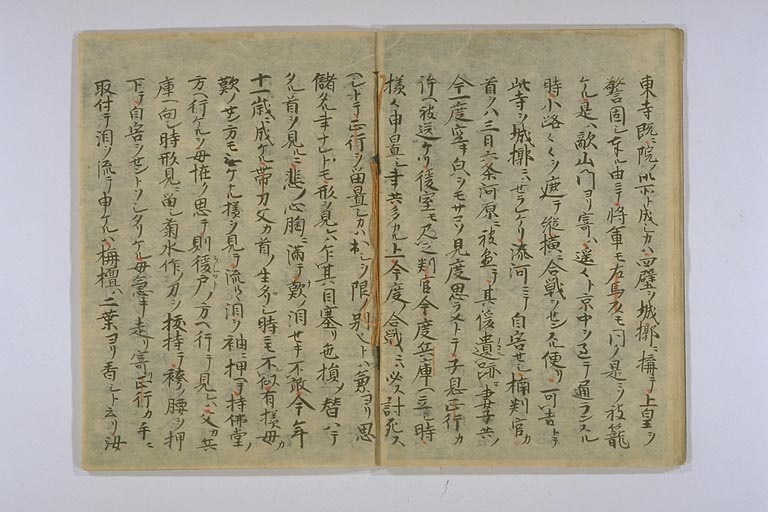 東寺既ニ院ノ御所ト成シカハ四壁ヲ城郭ニ構テ上皇ヲ
警固シ奉ル由ニテ将軍モ左馬頭モ同ク是ニソ被籠
ケル是ハ敵山門ヨリ寄ハ遥々ト京中ヲ歴テ通ランスル
時小路々々ヲ遮テ縦横ニ合戦ヲセンスル便リ可吉トテ
此寺ヲ城郭ニハセラレケリ湊河ニテ自害セシ楠判官カ
首ヲハ三日六条河原ニ被懸テ其後遺跡ニ妻子共ノ
今一度空キ皃ヲモサコソ見度思ラメトテ子息正行カ
許ヘ被送ケリ後室モ正行モ判官今度兵庫ヘ立シ時
様々申置シ事共多カル上今度ノ合戦ニハ必ス討死ス
ヘシトテ正行ヲ留置シカハ出シヲ限ノ別ナリトハ兼ヨリ思
儲タル事ナレトモ形ヲ見レハ乍其目塞リ色損メ替ハテ
タル首ヲ見ルニ悲ノ心胸ニ満テ歎ノ泪セキ不敢今年
十一歳ニ成ケル帯刀父カ首ノ生タリシ時ニモ不似有様母カ
歎ノセン方モナケナル様ヲ見テ流ルヽ泪ヲ袖ニ押テ持佛堂ノ
方ヘ行ケルヲ母恠ク思テ則後戸ノ方ヘ行テ見レハ父カ兵
庫ヘ向シ時形見ニ留シ菊水作ノ刀ヲ抜持テ袴ノ腰ヲ押
下テ自害ヲセントソシタリケル母急キ走リ寄正行カ手ニ
取付テ泪ヲ流テ申ケルハ栴檀ハ二葉ヨリ香シト云リ汝